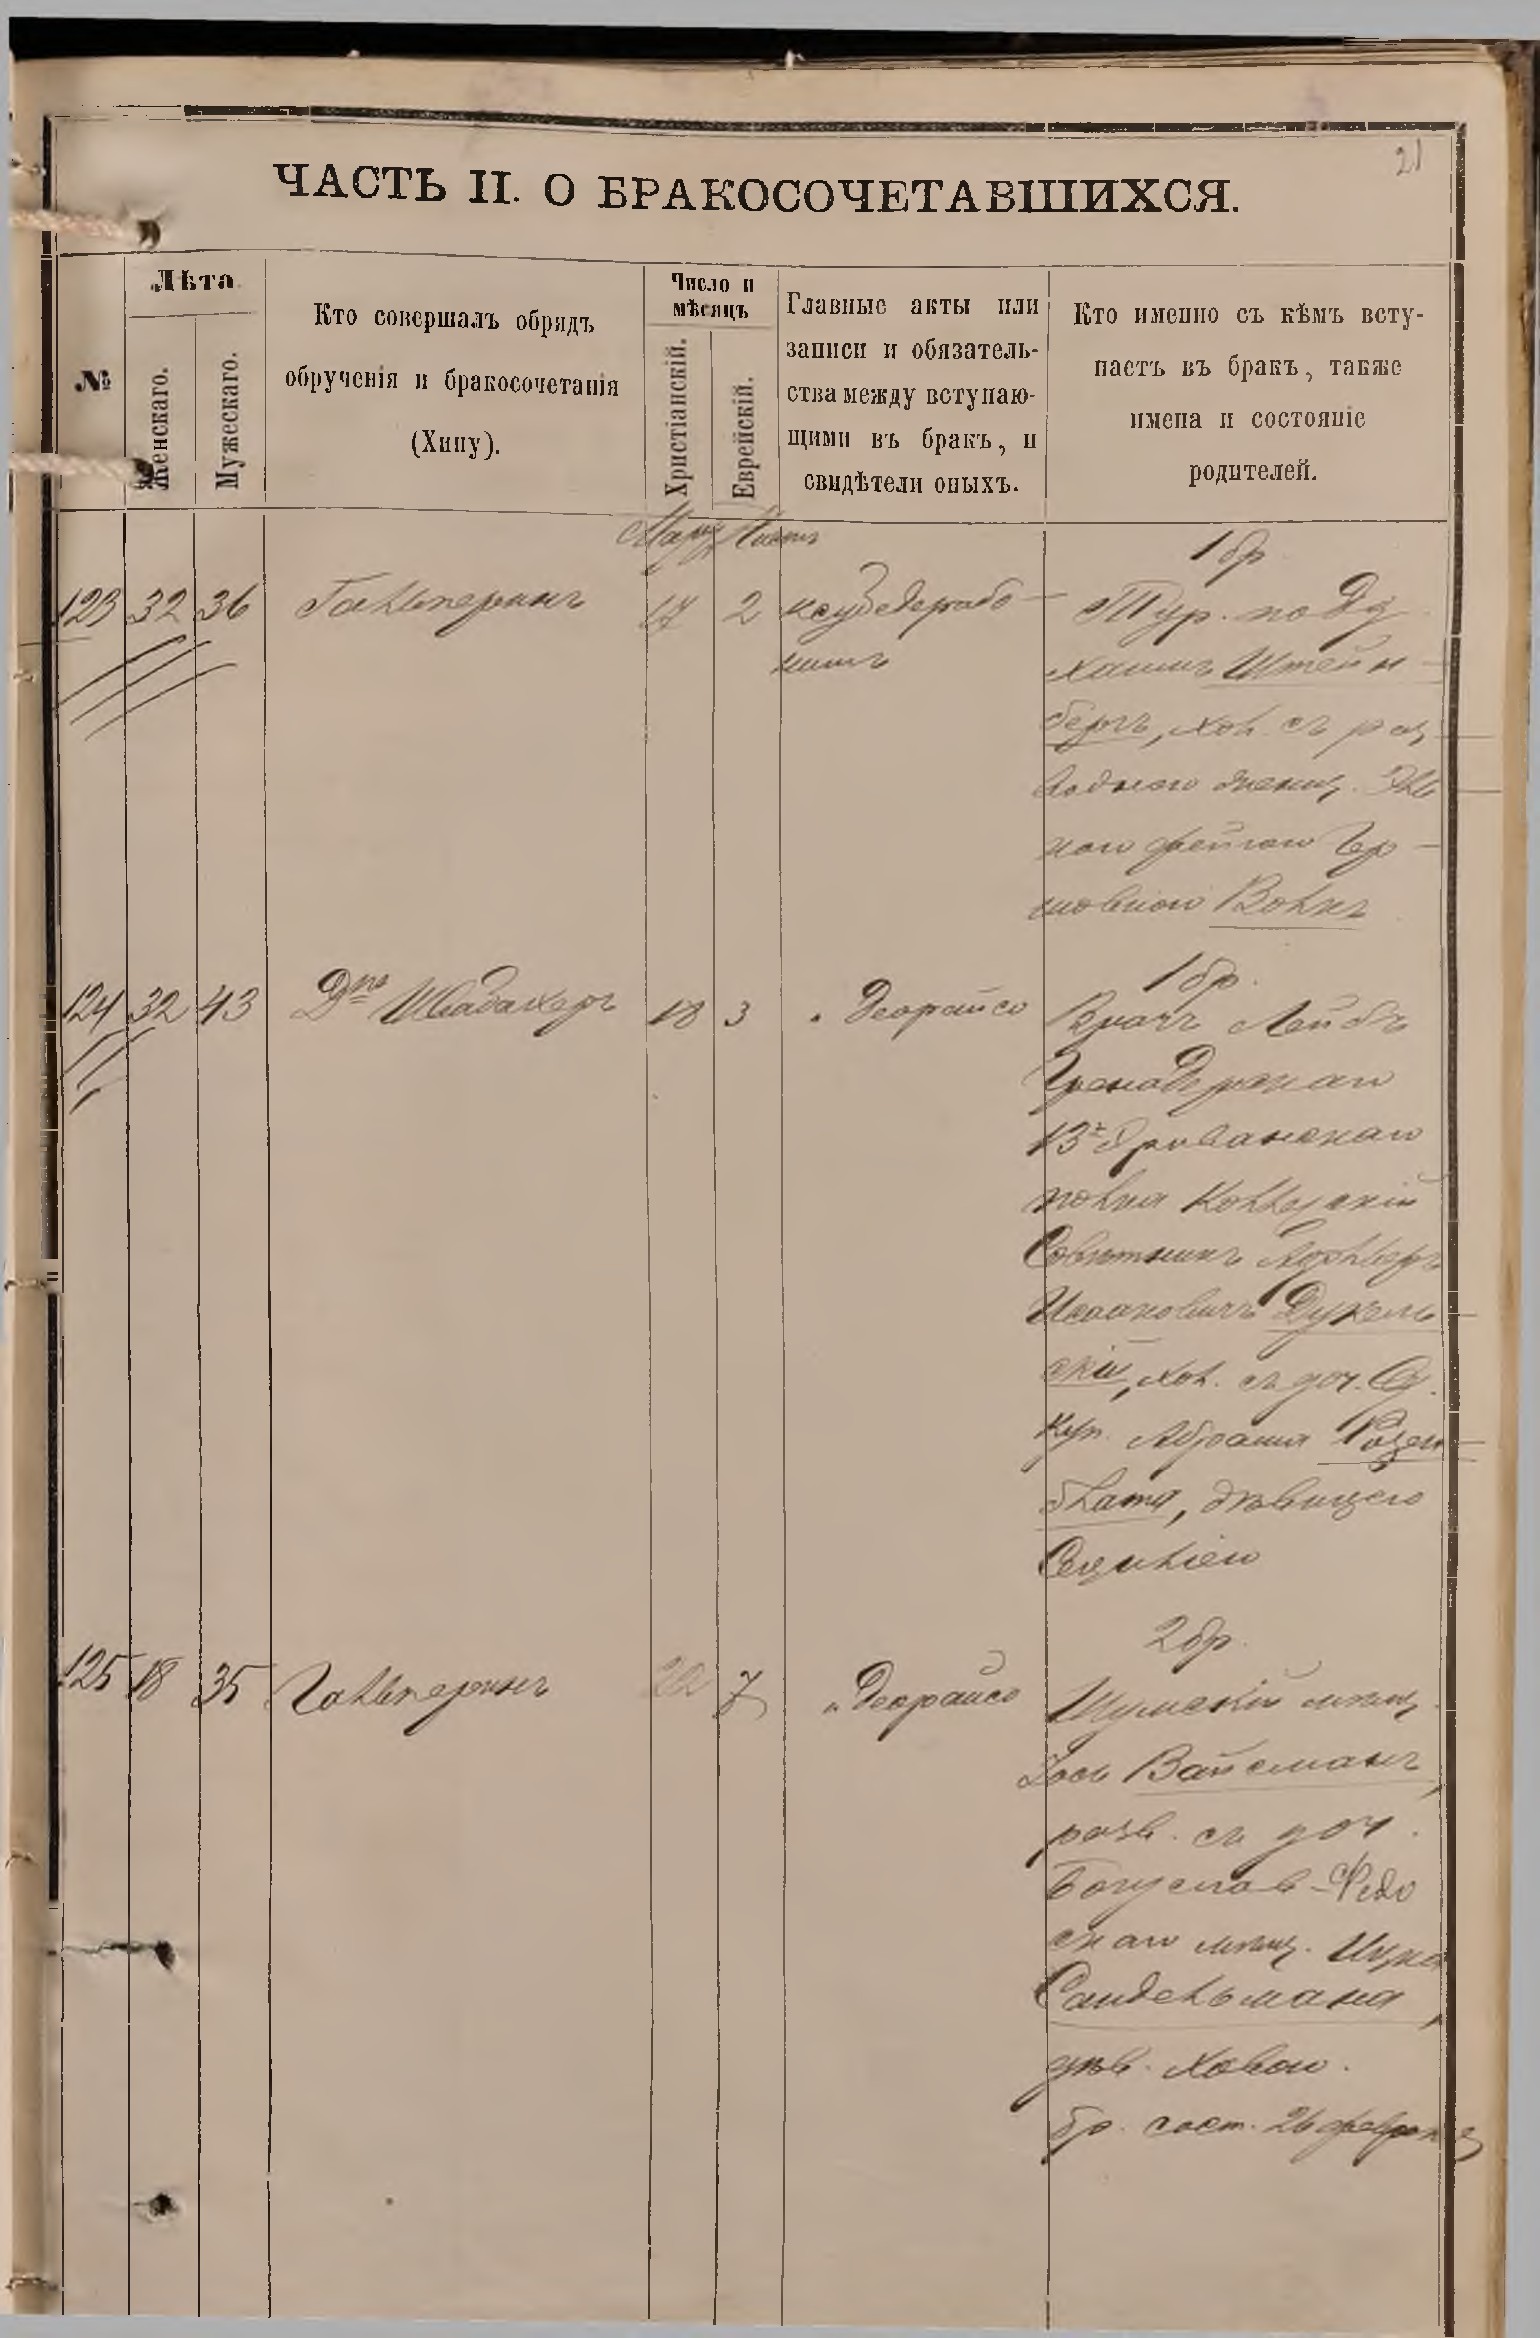 21
ЧАСТЬ II. О БРАКОСОЧЕТАВШИХСЯ.
№
Лѣта
Женскаго.
Мужескаго.
Кто совершалъ обрядъ
обрученія и бракосочетанія
(Хипу).
Число и
мѣсяцъ
Христіанскій.
Еврейскій.
Главные акты или
записи и обязатель-
ства между вступаю-
щими въ бракъ, и
свидѣтели оныхъ.
Кто именно съ кѣмъ всту-
паетъ въ бракъ, также
имена и состояніе
родителей.
1 бр
123 32 36 Гальперинъ 17 2
Хаимъ Штейн
бергъ, хол. съ раз
Фейгою Гер
шовною
1 бр.
124 32 43 Д-ръ Швабахеръ 18 3 " Деорайсо Врачъ Лейбъ
Гренадерскаго
13го Эриванскаго
полка Коллежскій
Совѣтникъ Адольфъ
Исааковичъ Дукель
скій, хол. съ доч. Од.
куп. Абрама Розен
блата, дѣвицею
Сесиліею
2 бр.
125 18 35 Гальперинъ 22 7 " Деорайсо Шумскій мѣщ.
Іось Вайсманъ,
разв. съ доч.
Богуслав
скаго мѣщ. Ицка
Сандельмана,
дѣв. Ховою.
бр. сост. 26 февраля